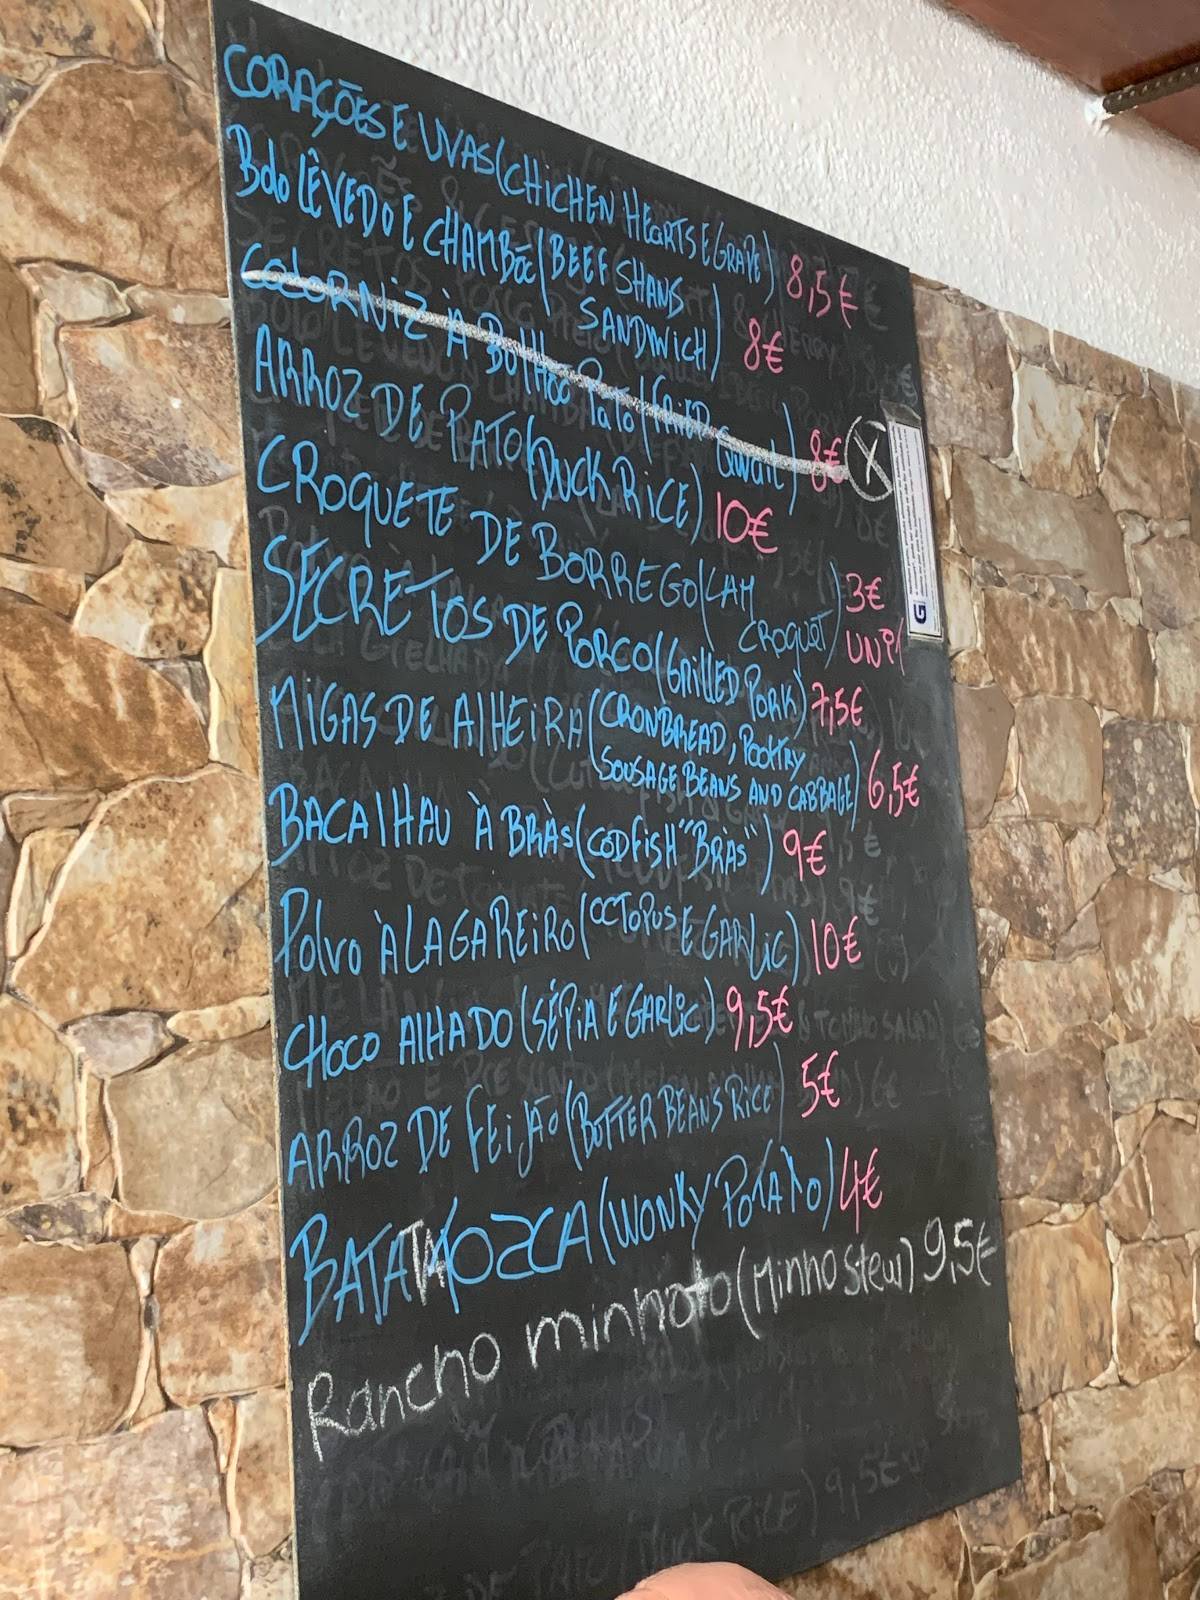 CORAÇÕES E UVAS (CHICHEN HEARTS E GRAPE) 8,5€
Bolo LÊVEDO E CHAMBÃC (BEEF SHANS
SANDWICH) 8€
CODORNIZ À BOLHÃO PATO (FRIED QWAIL) 8€ X
ARROZ DE PATO (DUCK RICE) 10€
CROQUETE DE BORREGO (LAM
CROQUET) 3€
UNI/
SECRETOS DE PORCO (GRILLED PORK) 7,5€
MIGAS DE ALHEIRA (CRONBREAD, POOLTRY
SOUSAGE BEANS AND CABBAGE) 6,5€
BACALHAU À BRÀS (CODFISH "BRÀS") 9€
Polvo À LAGAREIRO (OCTOPUS E GARLIC) 10€
CHOCO ALHADO (SÉPIA E GARLIC) 9,5€
ARROZ DE FEIJÃO (BUTTER BEANS RICE) 5€
BATATA MOZCA (WONKY POTATO) 4€
Rancho minhoto (Minho stew) 9,5€
G